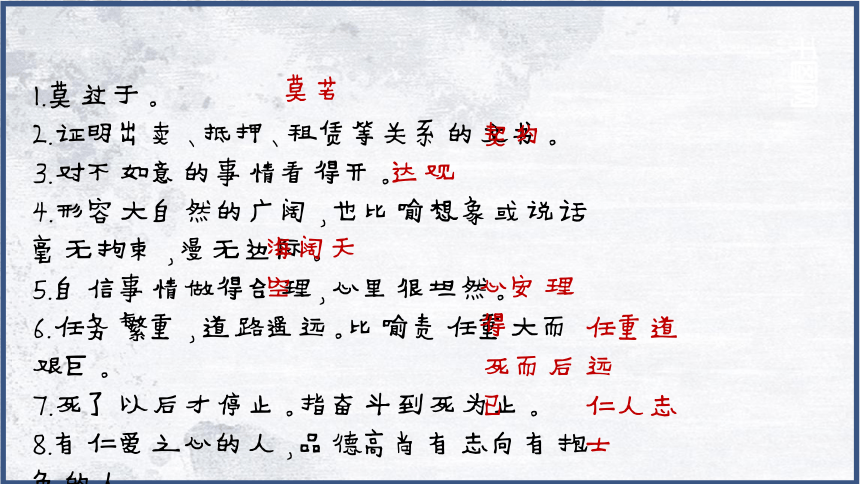 1.莫过于。 莫若
2.证明出卖、抵押、租赁等关系的契约。 契约
3.对不如意的事情看得开。达观
4.形容大自然的广阔,也比喻想象或说话
毫无拘束,漫无边际。海阔天
空
5.自信事情做得合理,心里很坦然。心安理
得
6.任务繁重,道路遥远。比喻责任重大而 任重道
远
艰巨。
死而后
已
7.死了以后才停止。指奋斗到死为止。
仁人志
士
8.有仁爱之心的人,品德高尚有志向有抱
负的人